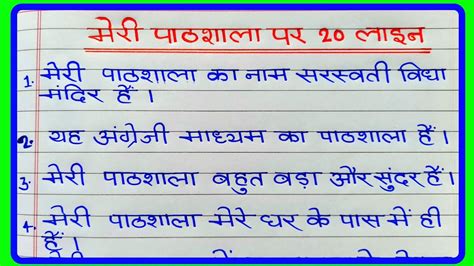 मेरी पाठशाला पर 20 लाइन
1. मेरी पाठशाला का नाम सरस्वती विधा
मंदिर हैं ।
2. यह अंग्रेजी माध्यम का पाठशाला हैं ।
3. मेरी पाठशाला बहुत बड़ा और सुंदर हैं ।
4. मेरी पाठशाला मेरे घर के पास में ही
हैं ।